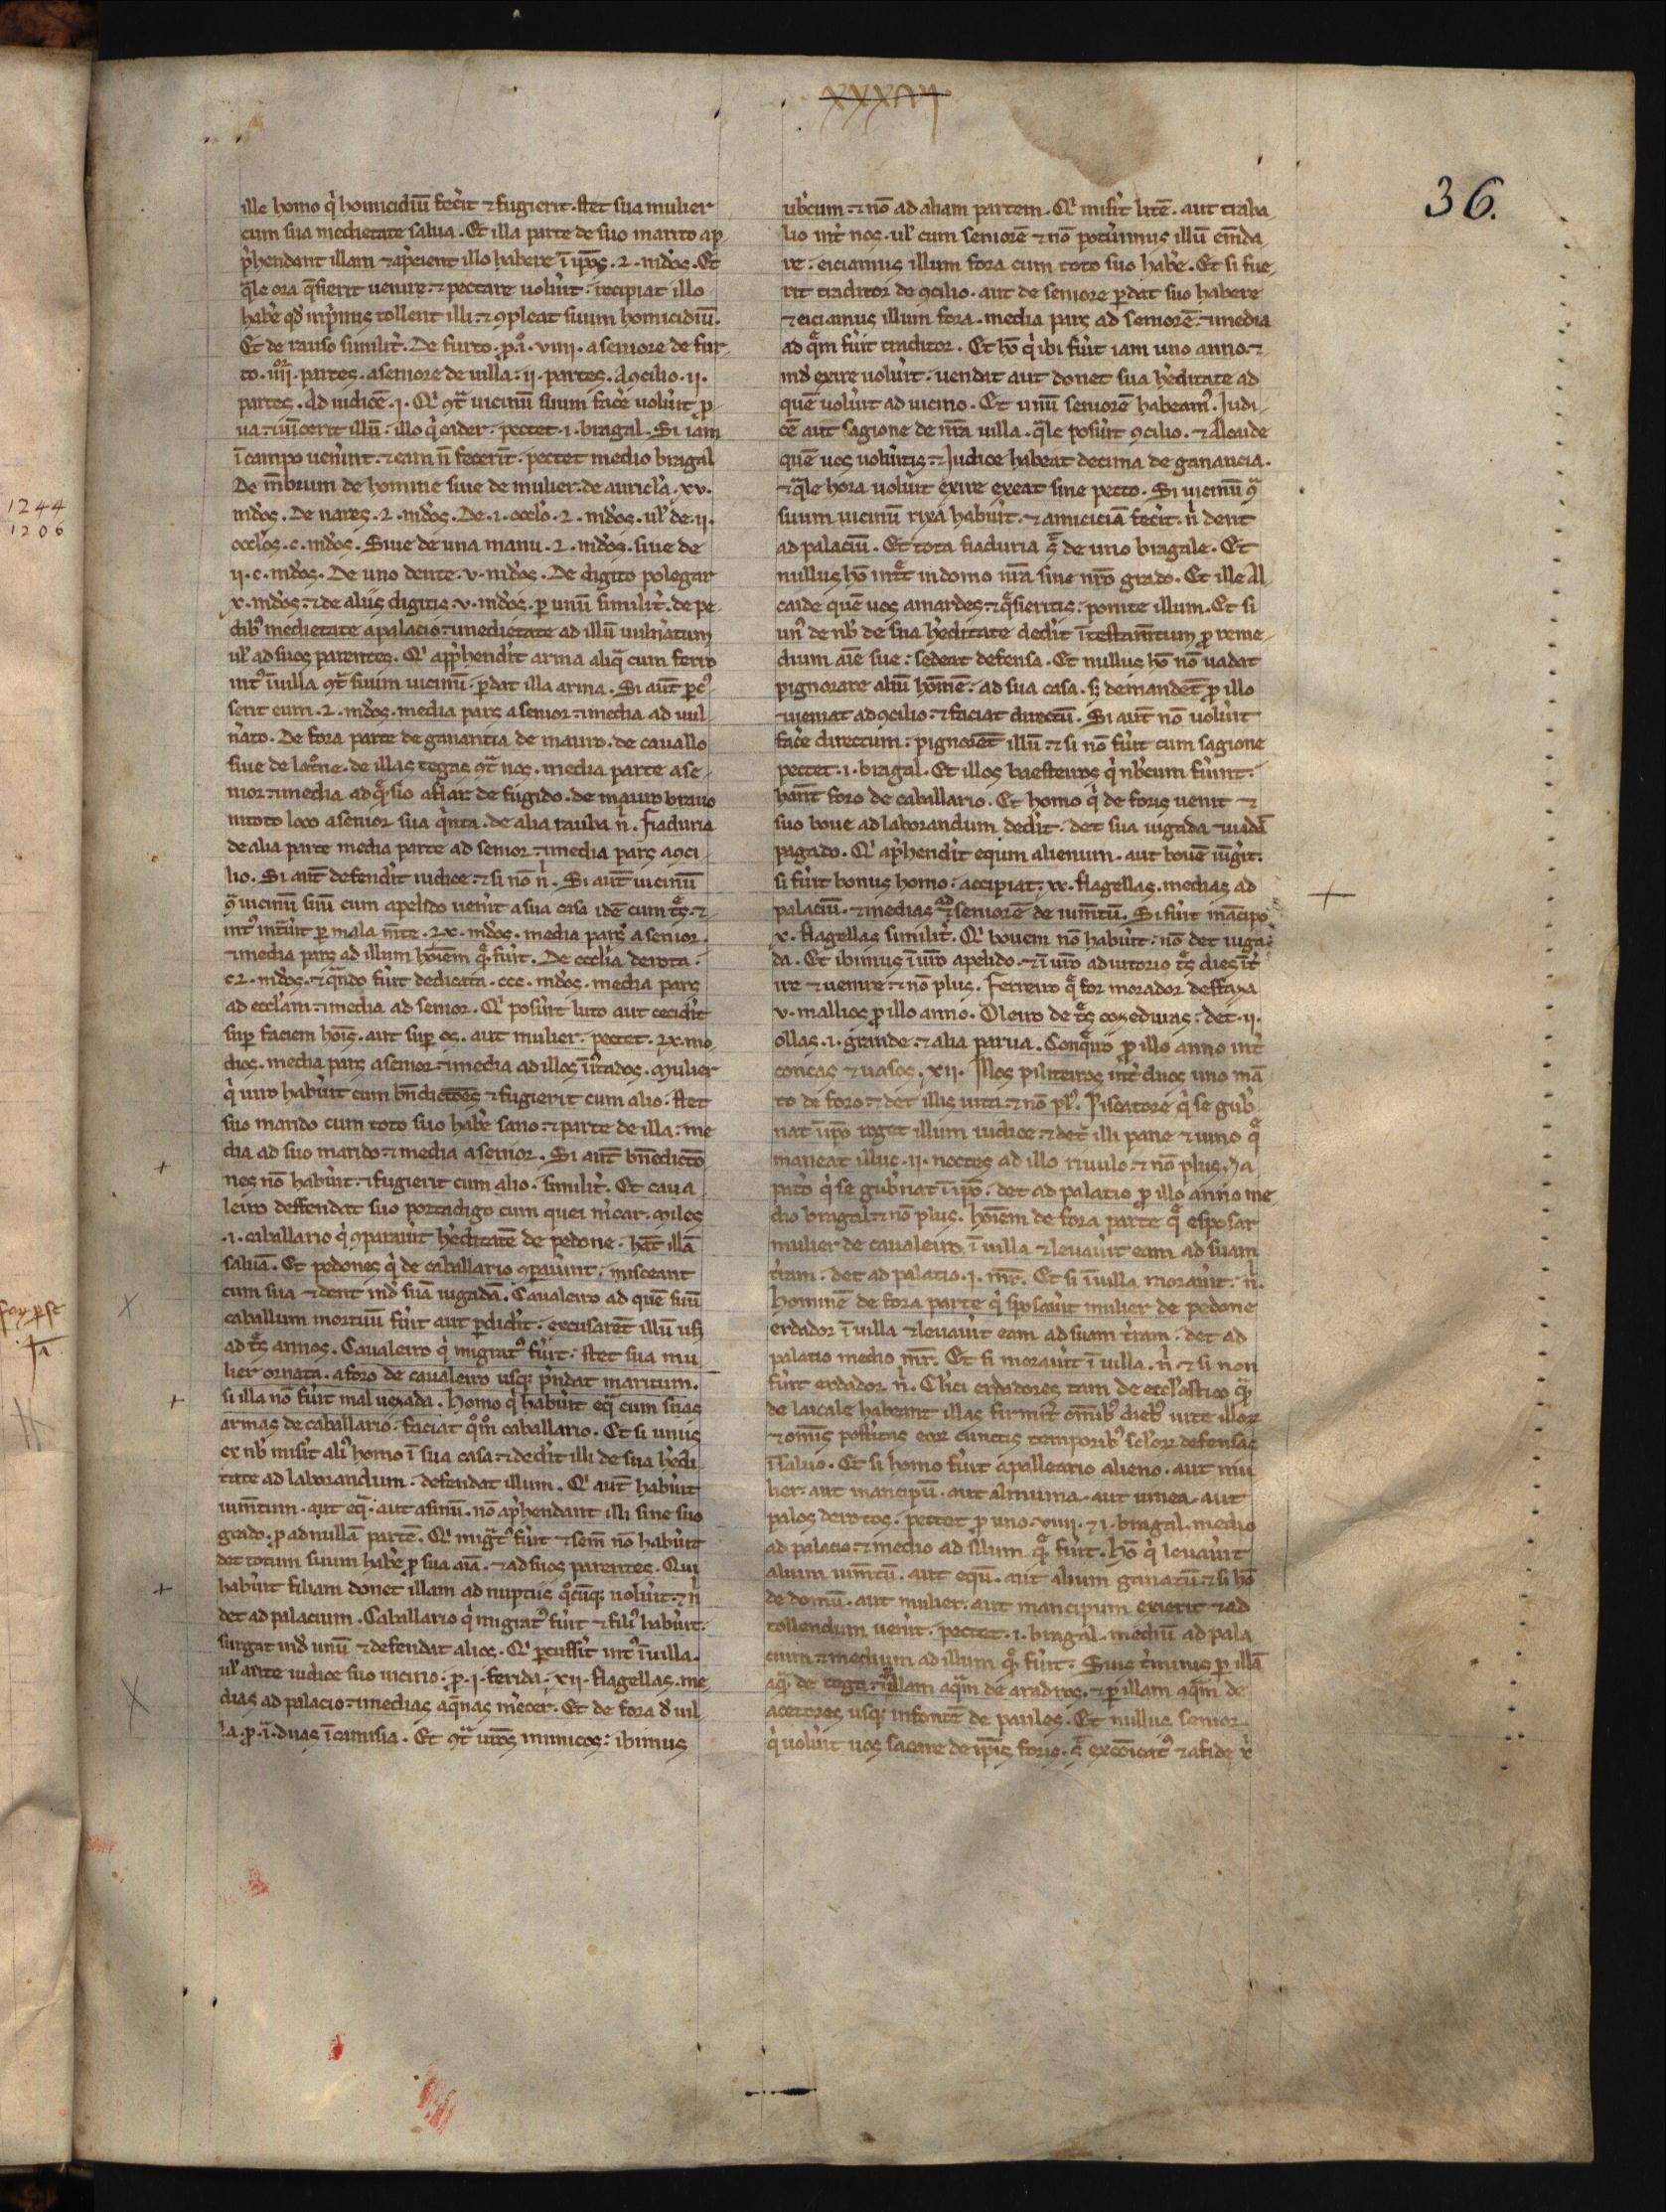 xxxvij
36.
ille homo q̍ homicidiū fec̍it ⁊ fugierit. stet sua mulier
cum sua medietate salua. Et illa parte de suo marito ap
p̍hendant illam ⁊ ap̍cient illo habere ī ip̄os. 2. mōdos. Et
q̄le ora q̄sierit uenire. ⁊ pectare uolu̍it. recipiat illo
hab̍e qd̄ inp̍mis tollent illi. ⁊ ꝯpleat suum homicidiū.
Et de rauso similit̍. De furto. ꝓ .i. viiii. a seniore de fur
to. iiii. partes. a seniore de villa. ii. partes. A ꝯcilio. ii.
partes. Ad iudicē. i. Q̍ ꝯt̄ uicinū suum fac̍e uolu̍it ꝓ
ua. ⁊ uīcerit illū. illo q̍ cader. pectet. i. bragal. Si iam
ī campo uen̍int. ⁊ eam n̄ fecerīt. pectet medio bragal
De m̄brum de homine siue de mulier. de auricl̄a. xv.
mōdos. De nares. 2. mōdos. De. i. occl̄o. 2. mōdos. ul̄ de. ii.
occl̄os. c. mōdos. Siue de una manu. 2. mōdos. siue de
ii. c. mōdos. De uno dente. v. mōdos. De digito polegar
x. mōdos. ⁊ de aliis digitis. v. mōdos. ꝑ unū similit̍. de pe
dibꝰ medietate a palacio. ⁊ medietate ad illū uuln̍atum
ul̄ ad suos parentes. Q̍ app̍hendi̍t arma aliq̄ cum ferro
intꝰ ī uilla ꝯt̄ suum uicinū. ꝑdat illa arma. Si aut̄ ꝑcꝰ
serit eum. 2. mōdos. media pars a senior. ⁊ media ad uul
n̍ato. De fora parte de ganantia de mauro. de cauallo
siue de lorōne. de illas tegas ꝯt̄ nos. media parte a se
nior. ⁊ media ad q̄ sio afiar. de fugido. de mauro brauo
in toto loco a senior sua q̍nta. de alia rauba n̍. Fiaduria
de alia parte media parte ad senior. ⁊ media pars a ꝯci
lio. Si aut̄ defendi̍t iudice. ⁊ si nō n̍. Si aut̄ uicinū
ꝯ̄ uicinū suū cum apelido uen̍it a sua casa idē cum t̄s. ⁊
intꝰ int̄u̍it ꝑ mala m̄te. 2x. mōdos. media pars a senior.
⁊ media pars ad illum hoīem q̄ fu̍it. De eccl̄ia derota.
c2. mōdos. ⁊ q̄ndo fu̍it dedicata. ccc. mōdos. media pars
ad eccl̄am. ⁊ media ad senior. Q̍ posu̍it luto aut cecidi̍t
suꝑ faciem hoīs. aut suꝑ os. aut mulier. pectet. 2x. mo
dios. media pars a senior. ⁊ media ad illos ītados. Mulier
q̍ uiro habu̍it cum bn̄dictōes ⁊ fugierit cum alio. stet
suo marido cum toto suo hab̍e sano. ⁊ parte de illa. me
dia ad suo marido. ⁊ media a senior. Si aut̄ bn̄edictō
nes nō habu̍it. ⁊ fugierit cum alio. similit̍. Et caua
leiro deffendat suo portadigo cum quei m̍car. Miles
.i. caballario q̍ ꝯparaui̍t h̍editatē de pedone. hāt illā
saluā. Et pedones q̍ de caballario ꝯpau̍int. misceant
cum sua ⁊ dent ind̄ suā iugadā. Caualeiro ad quē suū
caballum mortuū fu̍it aut ꝑdidi̍t. excusarēt illū usꝗ
ad t̄s annos. Caualeiro q̍ migratꝰ fu̍it. stet sua mu
lier ornata. a foro de caualeiro usqꝫ p̍ndat maritum.
si illa nō fu̍it mal uexada. Homo q̍ habu̍it eq̄ cum suas
armas de caballario. faciat q̊m̊ caballario. Et si unus
ex nob̄ misi̍t aliꝰ homo ī sua casa. ⁊ dedi̍t illi de sua h̍edi
tate ad laborandum. defendat illum. Q̍ aut̄ habu̍it
ium̄tum. aut eq̄. aut asinū. nō ap̍hendant illi sine suo
grado. ꝓ ad nullā partē. Q̍ mig̍tꝰ fu̍it ⁊ sem̄ nō habu̍it
det totum suum hab̍e ꝓ sua aīā. ⁊ ad suos parentes. Qui
habu̍it filiam donet illam ad nuptus q̊cūqꝫ uolu̍it. ⁊ n̍
det ad palacium. Caballario q̍ migratꝰ fu̍it ⁊ filiꝰ habu̍it.
surgat ind̄ unū ⁊ defendat alios. Q̍ ꝑcussi̍t intꝰ ī uilla.
ul̄ ante iudice suo uicino. ꝓ .i. ferida. xii. flagellas. me
dias ad palacio. ⁊ medias a q̄ nas m̍ecer. Et de fora d̍ uil
la. ꝓ .i. duas ī camisia. Et ꝯt̄ ur̄os inimicos. ibimus
ub̍cum. ⁊ nō ad aliam partem. Q̍ misi̍t litē. aut traba
lio int̍ nos. ul̄ cum seniorē ⁊ nō potu̍imus illū em̄da
re. eiciamus illum fora cum toto suo hab̍e. Et si fue
rit traditor de ꝯcilio. aut de seniore ꝑdat suo habere
⁊ eiciamus illum fora. media pars ad seniorē. ⁊ media
ad q̄m fu̍it traditor. Et hō q̍ ibi fu̍it iam uno anno. ⁊
ind̄ exire uolu̍it. uendat aut donet sua h̍editate ad
quē uolu̍it ad uicino. Et unū seniorē habeamꝰ. Iudi
cē aut sagione de nr̄a uilla. q̄le posu̍it ꝯcilio. ⁊ Alcaide
quē uos uolu̍itis. ⁊ Iudice habeat decima de ganancia.
⁊ q̄le hora uolu̍it exire exeat sine pecto. Si uicinū ꝯ̄
suum uicinū rixā habu̍it. ⁊ amiciciā feci̍t. n̍ dent
ad palaciū. Et tota fiaduria s̄ de uno bragale. Et
nullus hō int̄t in domo ur̄a sine ur̄o grado. Et ille Al
caide quē uos amardes. ⁊ q̄sieritis. ponite illum. Et si
unꝰ de nob̄ de sua h̍editate dedi̍t ī testam̄tum ꝓ reme
dium aīe sue. sedeat defensa. Et nullus hō nō uadat
pignorare aliū hom̄ē. ad sua casa. sꝫ demandet ꝓ illo
⁊ ueniat ad ꝯcilio. ⁊ faciat directū. Si aut̄ nō uolu̍it
fac̍e directum. pignorēt illū. ⁊ si nō fu̍it cum sagione
pectet. i. bragal. Et illos baesteiros q̍ ub̍cum fu̍int.
hān̄t foro de caballario. Et homo q̍ de foris uenit ⁊
suo boue ad laborandum dedi̍t. det sua iugada ⁊ uadā
pagado. Q̍ ap̍hendi̍t equm alienum. aut bouē iūg̍it.
si fu̍it bonus homo. accipiat. xx. flagellas. medias ad
palaciū. ⁊ medias ad seniorē de ium̄tū. Si fu̍it mācipo
x. flagellas similit̍. Q̍ bouem nō habu̍it. nō det iuga
da. Et ibimus ī ur̄o apelido. ⁊ ī ur̄o adiutorio t̄s dies īt̍
ire ⁊ uenire. ⁊ nō plus. Ferreiro q̄ for morador deffaya
v. mallios ꝓ illo anno. Oleiro de t̄s coxeduras. det. ii.
ollas. i. grande. ⁊ alia parua. Conq̍ro ꝓ illo anno int̍
concas ⁊ uasos. xii. Illos piliteiros int̍ duos uno mā
to de foro. ⁊ det illis uita. ⁊ nō plꝰ. Piscatore q̍ se gub̍
nat ī ip̄o roget illum iudice. ⁊ det illi pane ⁊ uino q̄
maneat illuc. ii. noctes ad illo riuulo. ⁊ nō plus. Za
pat̍o q̍ se gub̍nat ī ip̄o. det ad palatio ꝓ illo anno me
dio bragal. ⁊ nō plus. Hoīem de fora parte q̄ esposar
mulier de caualeiro ī uilla ⁊ leuau̍it eam ad suam
t̍ram. det ad palatio. i. mr̄. Et si ī uilla morau̍it. n̍.
Hominē de fora parte q̍ sposau̍it mulier de pedone
erdador ī uilla ⁊ leuau̍it eam ad suam t̍ram. det ad
palatio medio mr̄. Et si morau̍it ī uilla. n̍. ⁊ si non
fu̍it erdador n̍. Cl̍ici erdadores tam de eccl̄astico q̄ꝫ
de laicale habeant illas firmit̍ om̄ibꝰ diebꝰ uite illoꝝ
⁊ om̄is post̍itas eoꝝ cunctis temporibꝰ scl̄oꝝ defensas
ī saluo. Et si homo fu̍it a palleario alieno. aut mu
lier. aut mancipū. aut almuina. aut uinea. aut
palos derotos. pectet ꝓ uno. viiii. ⁊ i. bragal. medio
ad palacio. ⁊ medio ad illum q̊ fu̍it. Hō q̍ leuau̍it
alium ium̄tū. aut equū. aut alium ganatū. ⁊ si hō
de domū. aut mulier. aut mancipum exierit ⁊ ad
tollendum uen̍it. pectet. i. bragal. mediū ad pala
cium. ⁊ medium ad illum q̊ fu̍it. Suis t̍minis ꝑ illā
aq̄ de tega. ⁊ ꝑ illam aq̄m de aradros. ⁊ ꝑ illam aq̄m de
acetores usqꝫ in fontē de paules. Et nullus senior
q̍ uolu̍it uos sacare de ip̄is foris. s̄ excōicatꝰ ⁊ a fide x̍